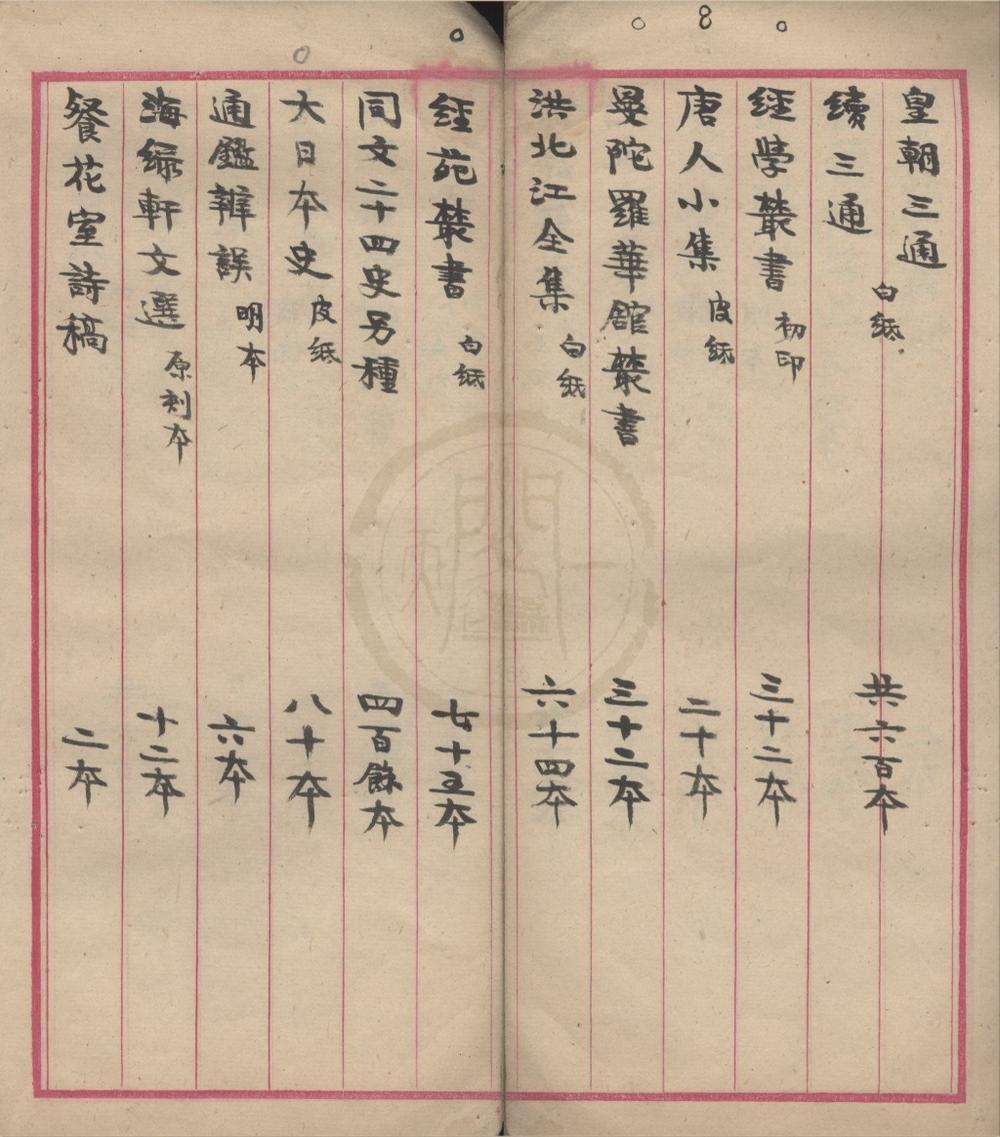 皇朝三通
續三通 白紙 共六百本
經學叢書 初印 三十二本
唐人小集 皮紙 二十本
曼陀羅華館叢書 三十二本
洪北江全集 白紙 六十四本
經苑叢書 白紙 七十五本
同文二十四史另種 四百餘本
大日本史 皮紙 八十本
通鑑辨誤 明本 六本
海绿軒文選 原刻本 十二本
餐花室詩稿 二本